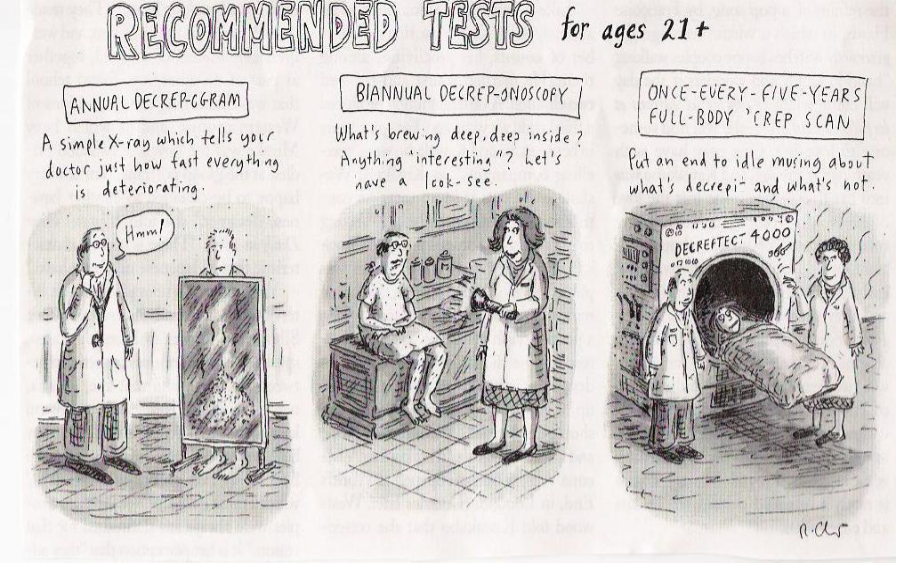 RECOMMENDED TESTS for ages 21+
ANNUAL DECREP-OGRAM
A simple X-ray which tells your
doctor just how fast everything
is deteriorating.
Hmm!
BIANNUAL DECREP-ONOSCOPY
What's brewing deep, deep inside?
Anything "interesting"? Let's
have a look-see.
ONCE-EVERY-FIVE-YEARS
FULL-BODY 'CREP SCAN
Put an end to idle musing about
what's decrepit and what's not.
DECREPTECT 4000
R. Chast